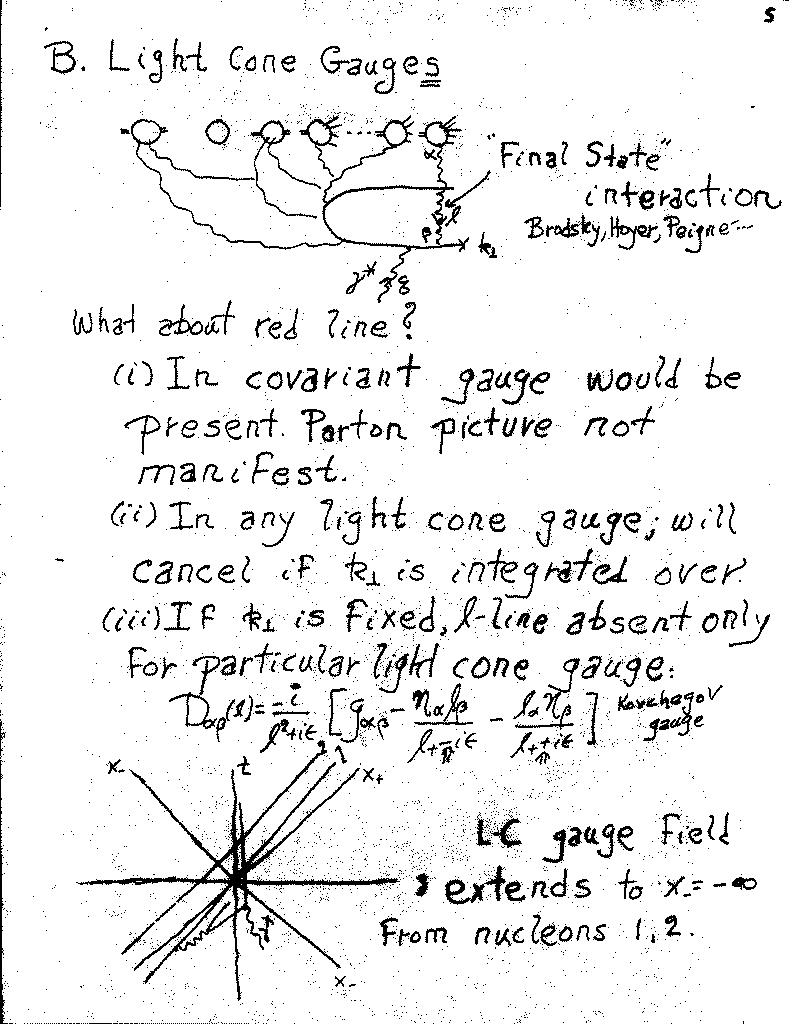 5
B. Light Cone Gauges
"Final State"
interaction
Brodsky, Hoyer, Peigne...
α
l
β
k⊥
γ* q
What about red line?
(i) In covariant gauge would be
present. Parton picture not
manifest.
(ii) In any light cone gauge, will
cancel if k⊥ is integrated over.
(iii) If k⊥ is fixed, l-line absent only
for particular light cone gauge:
D_αβ(l) = -i/(l²+iε) [g_αβ - η_α l_β/(l₊-iε) - l_α η_β/(l₊+iε)] Kovchegov
gauge
x₋ t 2 1 x₊
L-C gauge field
extends to x₋ = -∞
From nucleons 1, 2.
x₋